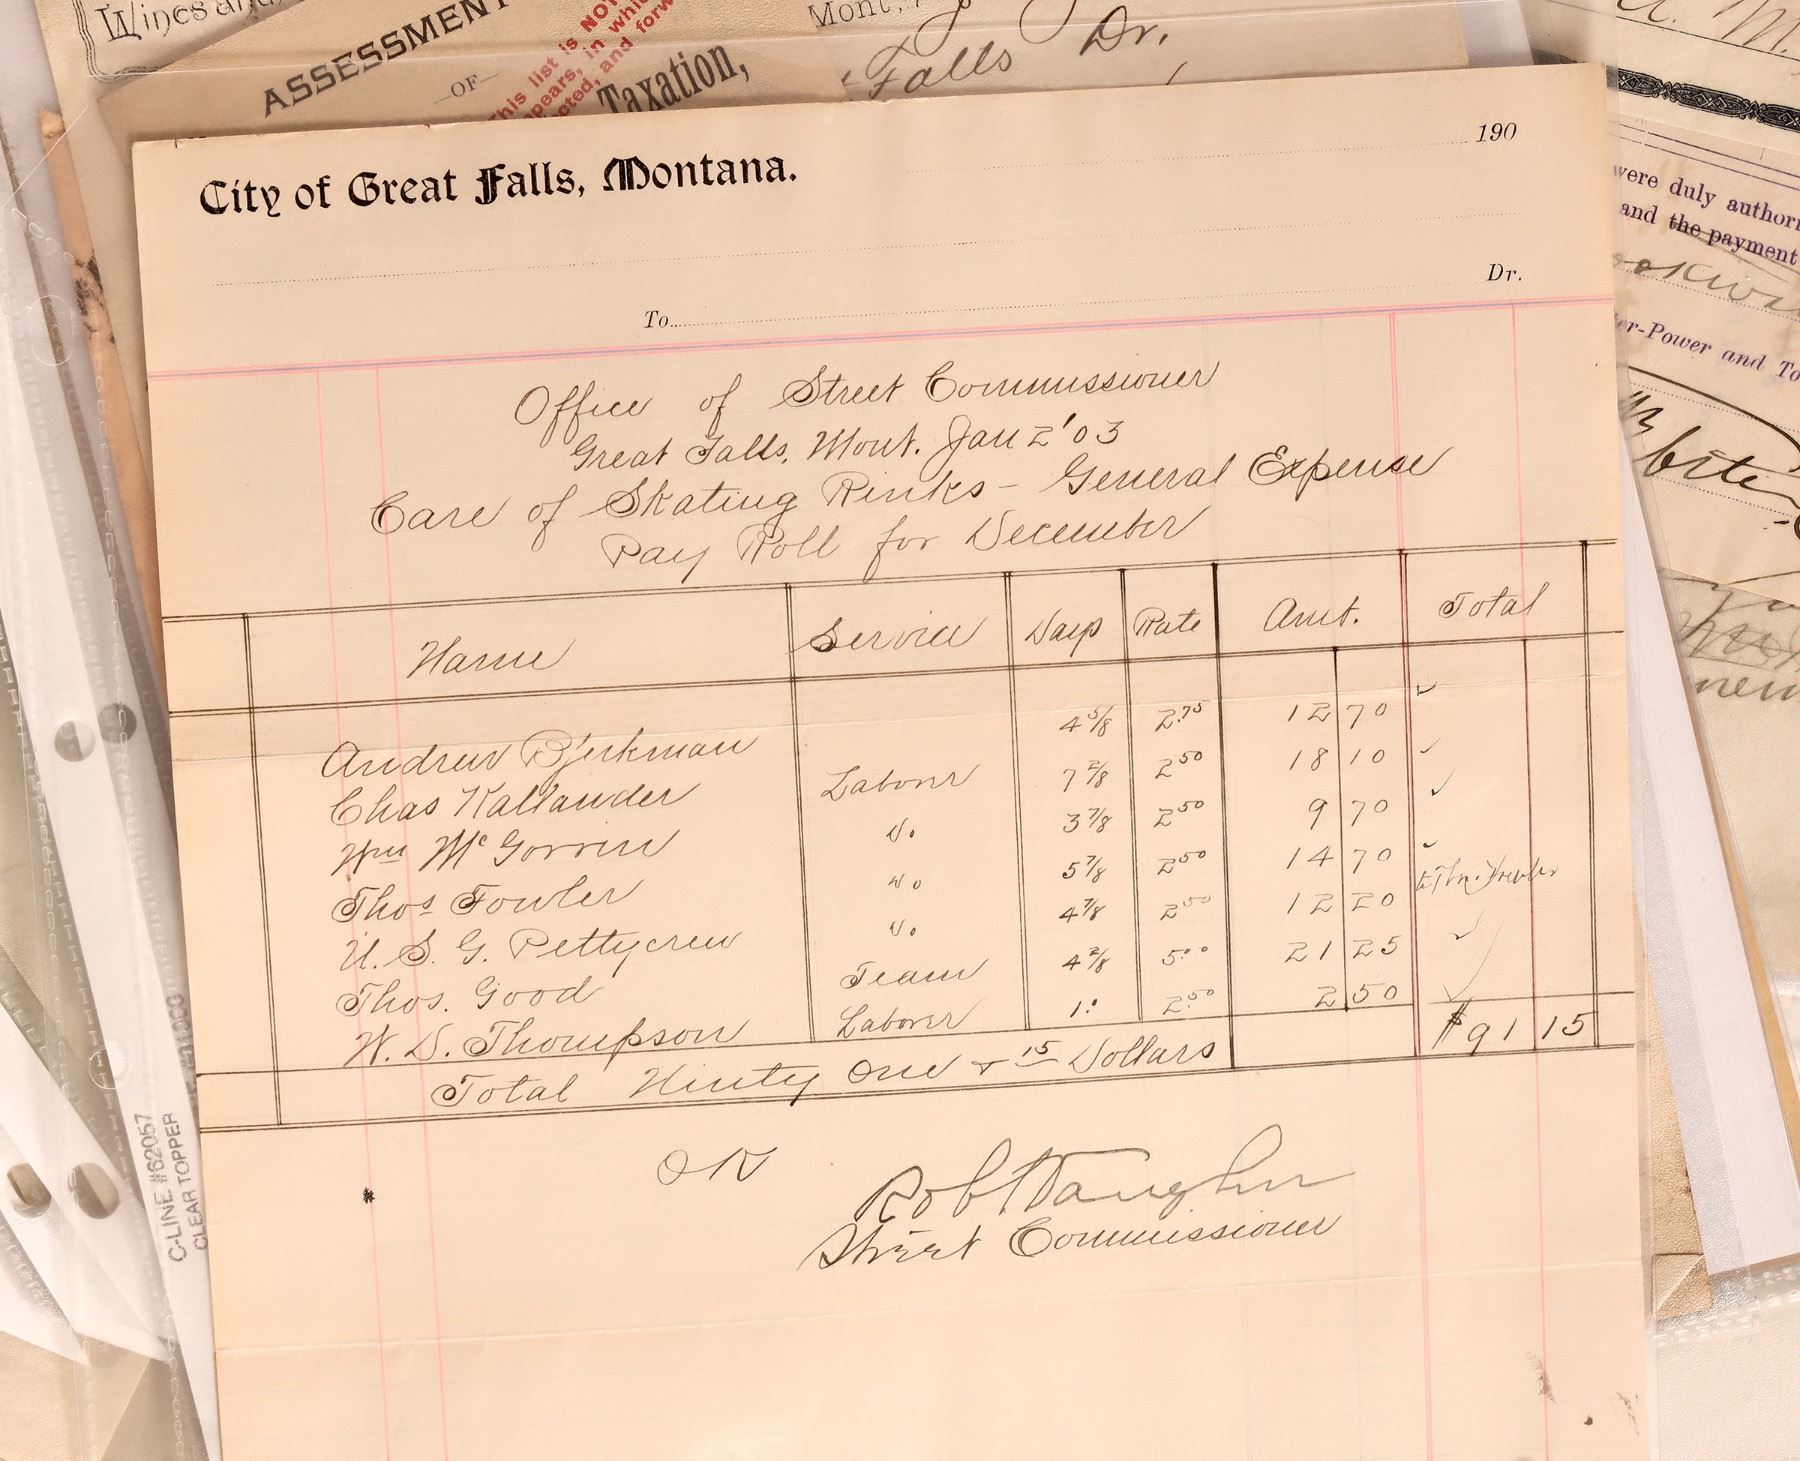 Wines and
ASSESSMENT
—OF—
This list is NOT
appears, in which
and forw
Taxation,
Mont.,
Falls Dr.
City of Great Falls, Montana.
190
Dr.
To
Office of Street Commissioner
Great Falls, Mont. Jan 2 '03
Care of Skating Rinks - General Expense
Pay Roll for December
Name Service Days Rate Amt. Total
Andrew Bjerkman 4 5/8 2.75 12 70 ✓
Chas Kallander Laborer 7 2/8 2 50 18 10 ✓
Wm McGorrin Do 3 7/8 2 50 9 70 ✓
Thos Fowler Do 5 7/8 2 50 14 70 ✓
U. S. G. Pettycrew Do 4 7/8 2 50 12 20
Thos. Good Team 4 2/8 5.00 21 25 ✓
W. D. Thompson Laborer 1. 2.50 2 50 ✓
Total Ninty One & 15 Dollars $91 15
OK
Robt Vaughn
Street Commissioner
were duly author
and the payment
er-Power and To
C-LINE #62057
CLEAR TOPPER